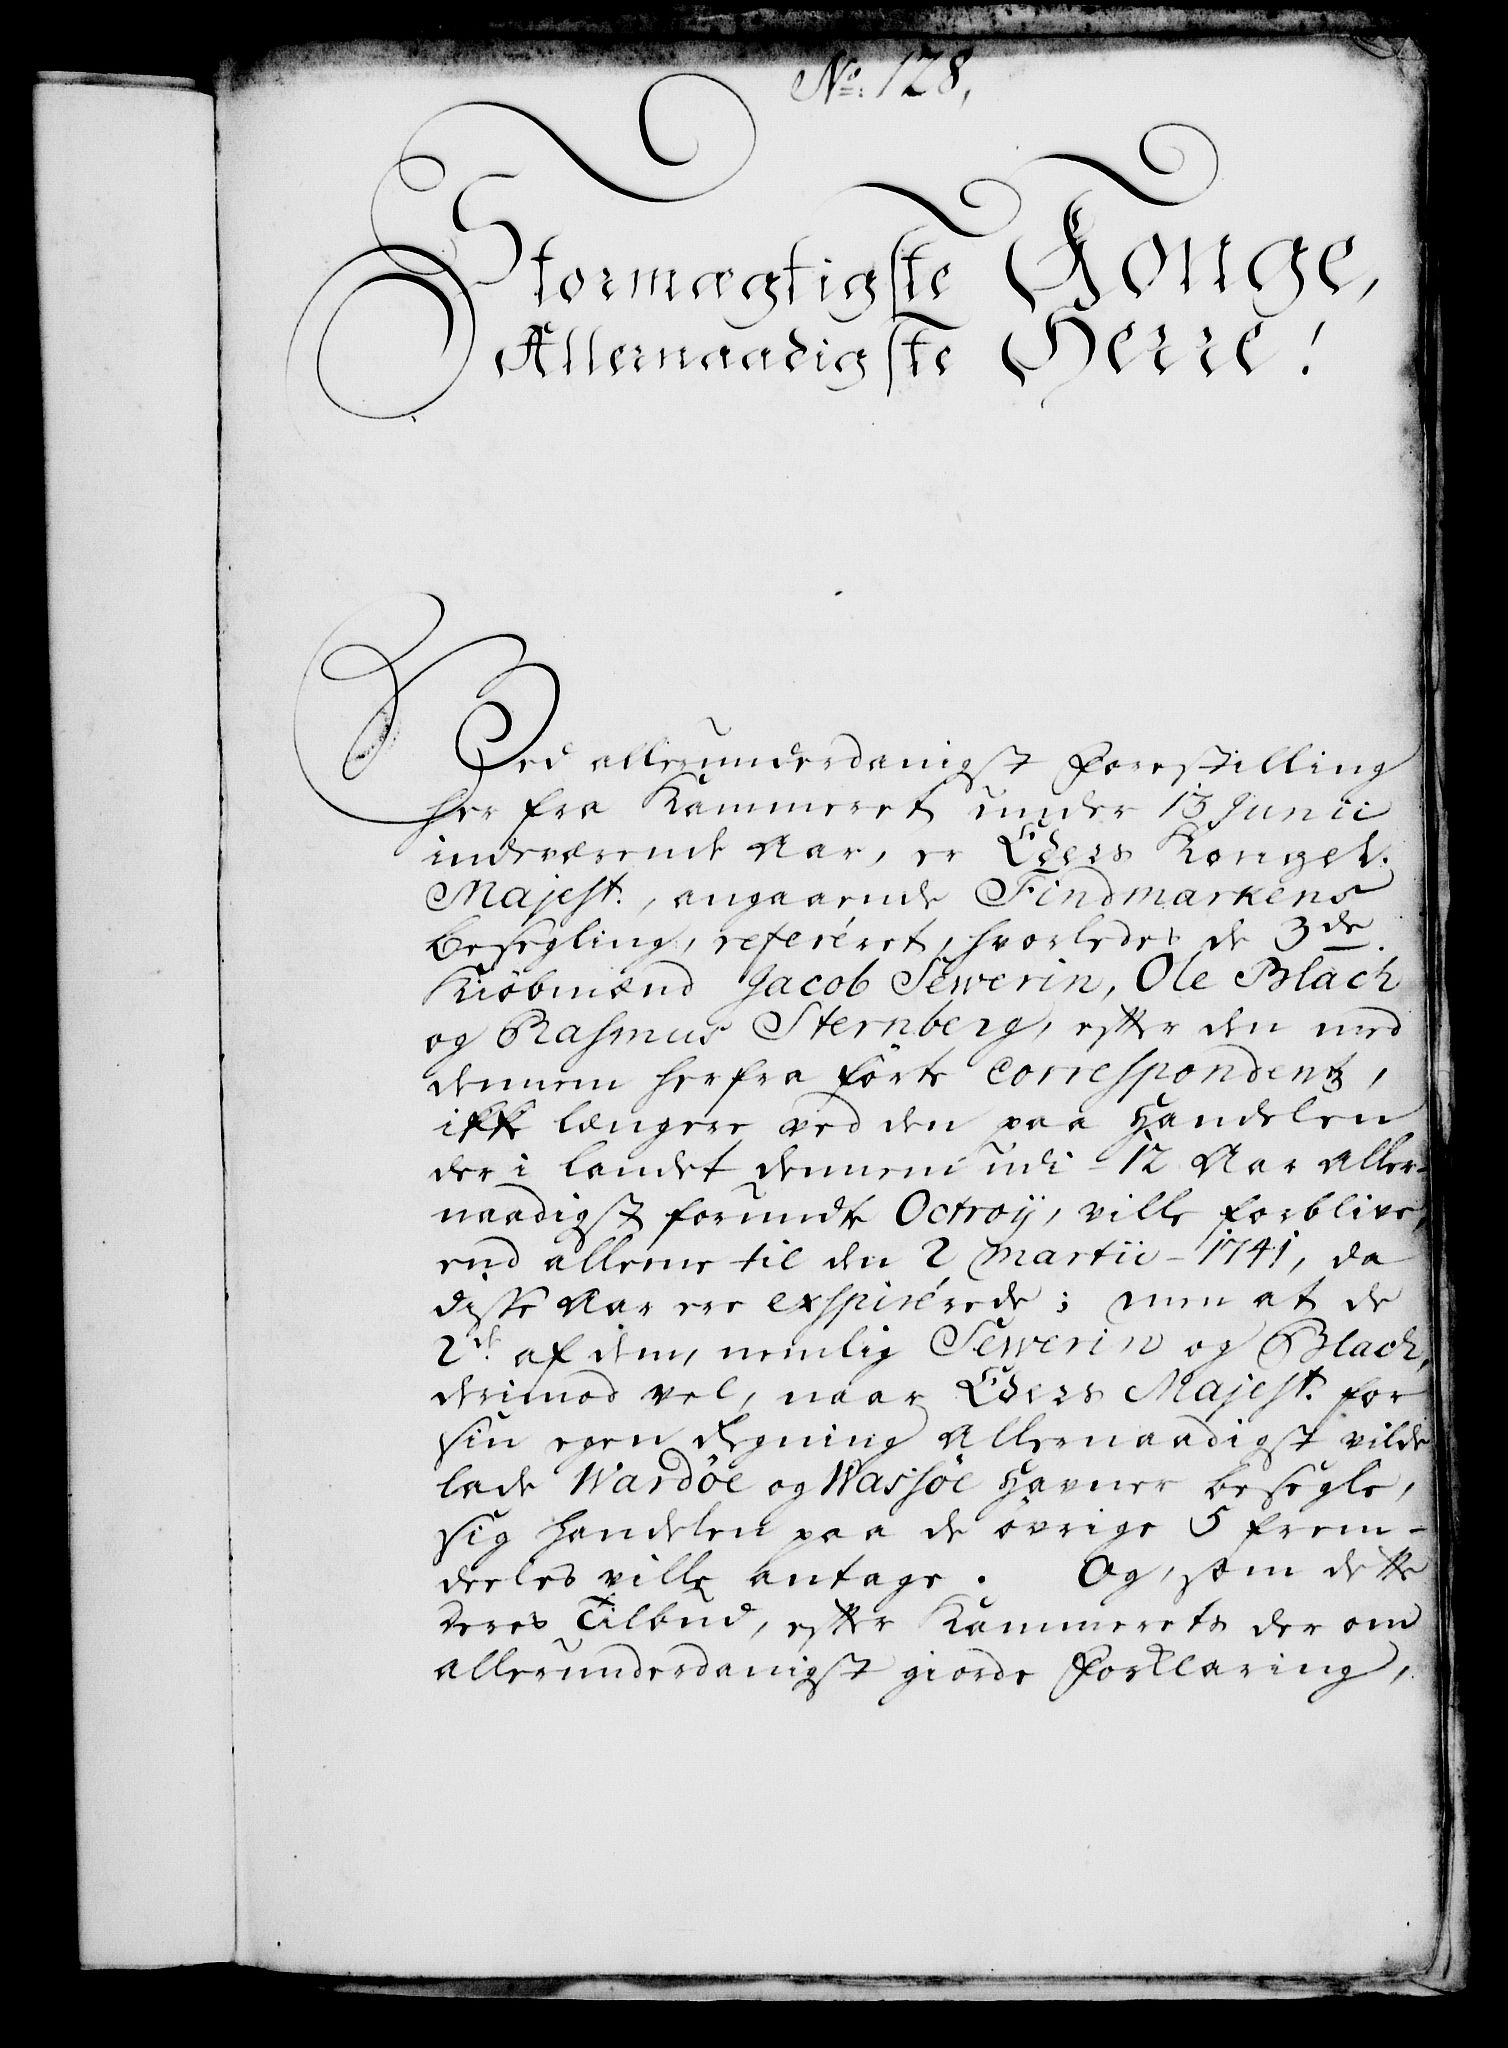 No: 128,
Stormægtigste Konge,
Allernaadigste Herre!
Ved allerunderdanigst Forestilling
her fra Kammeret under 13 Junii
indeværende Aar, er Eders Kongel.
Majest., angaaende Findmarkens
beseyling, referéret, hvorledes de 3de
Kiöbmænd Jacob Sewerin, Ole Blach
og Rasmus Sternberg, efter den med
dennem herfra förte Correspondentz,
ikke længere ved den paa Handelen
der i landet dennem udi 12 Aar aller-
naadigst forundte Octroÿ, ville forblive,
end alleene til den 2 Martii 1741, da
disse Aar ere exspirérede; men at de
2de af dem, nemlig Sewerin og Blach,
derimod vel, naar Eders Majest. for
sin egen Regning Allernaadigst vilde
lade Wardöe og Wassöe Havner besegle,
sig Handelen paa de övrige 5 frem-
deeles ville antage. Og, som dette
deres Tilbud, efter Kammerets der om
allerunderdanigst giorde Forklaring,